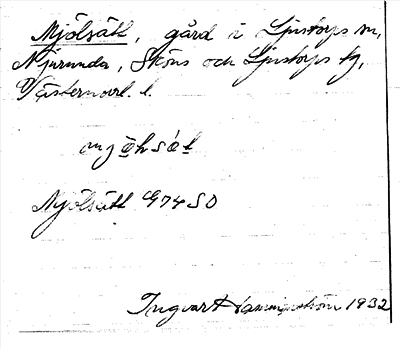 Mjölsätt, gård i Ljustorps sn,
Njurunda, Sköns och Ljustorps tg,
Västernorrl. l.
Mjölsätt G74 SO
Ingvar Hammarström 1932